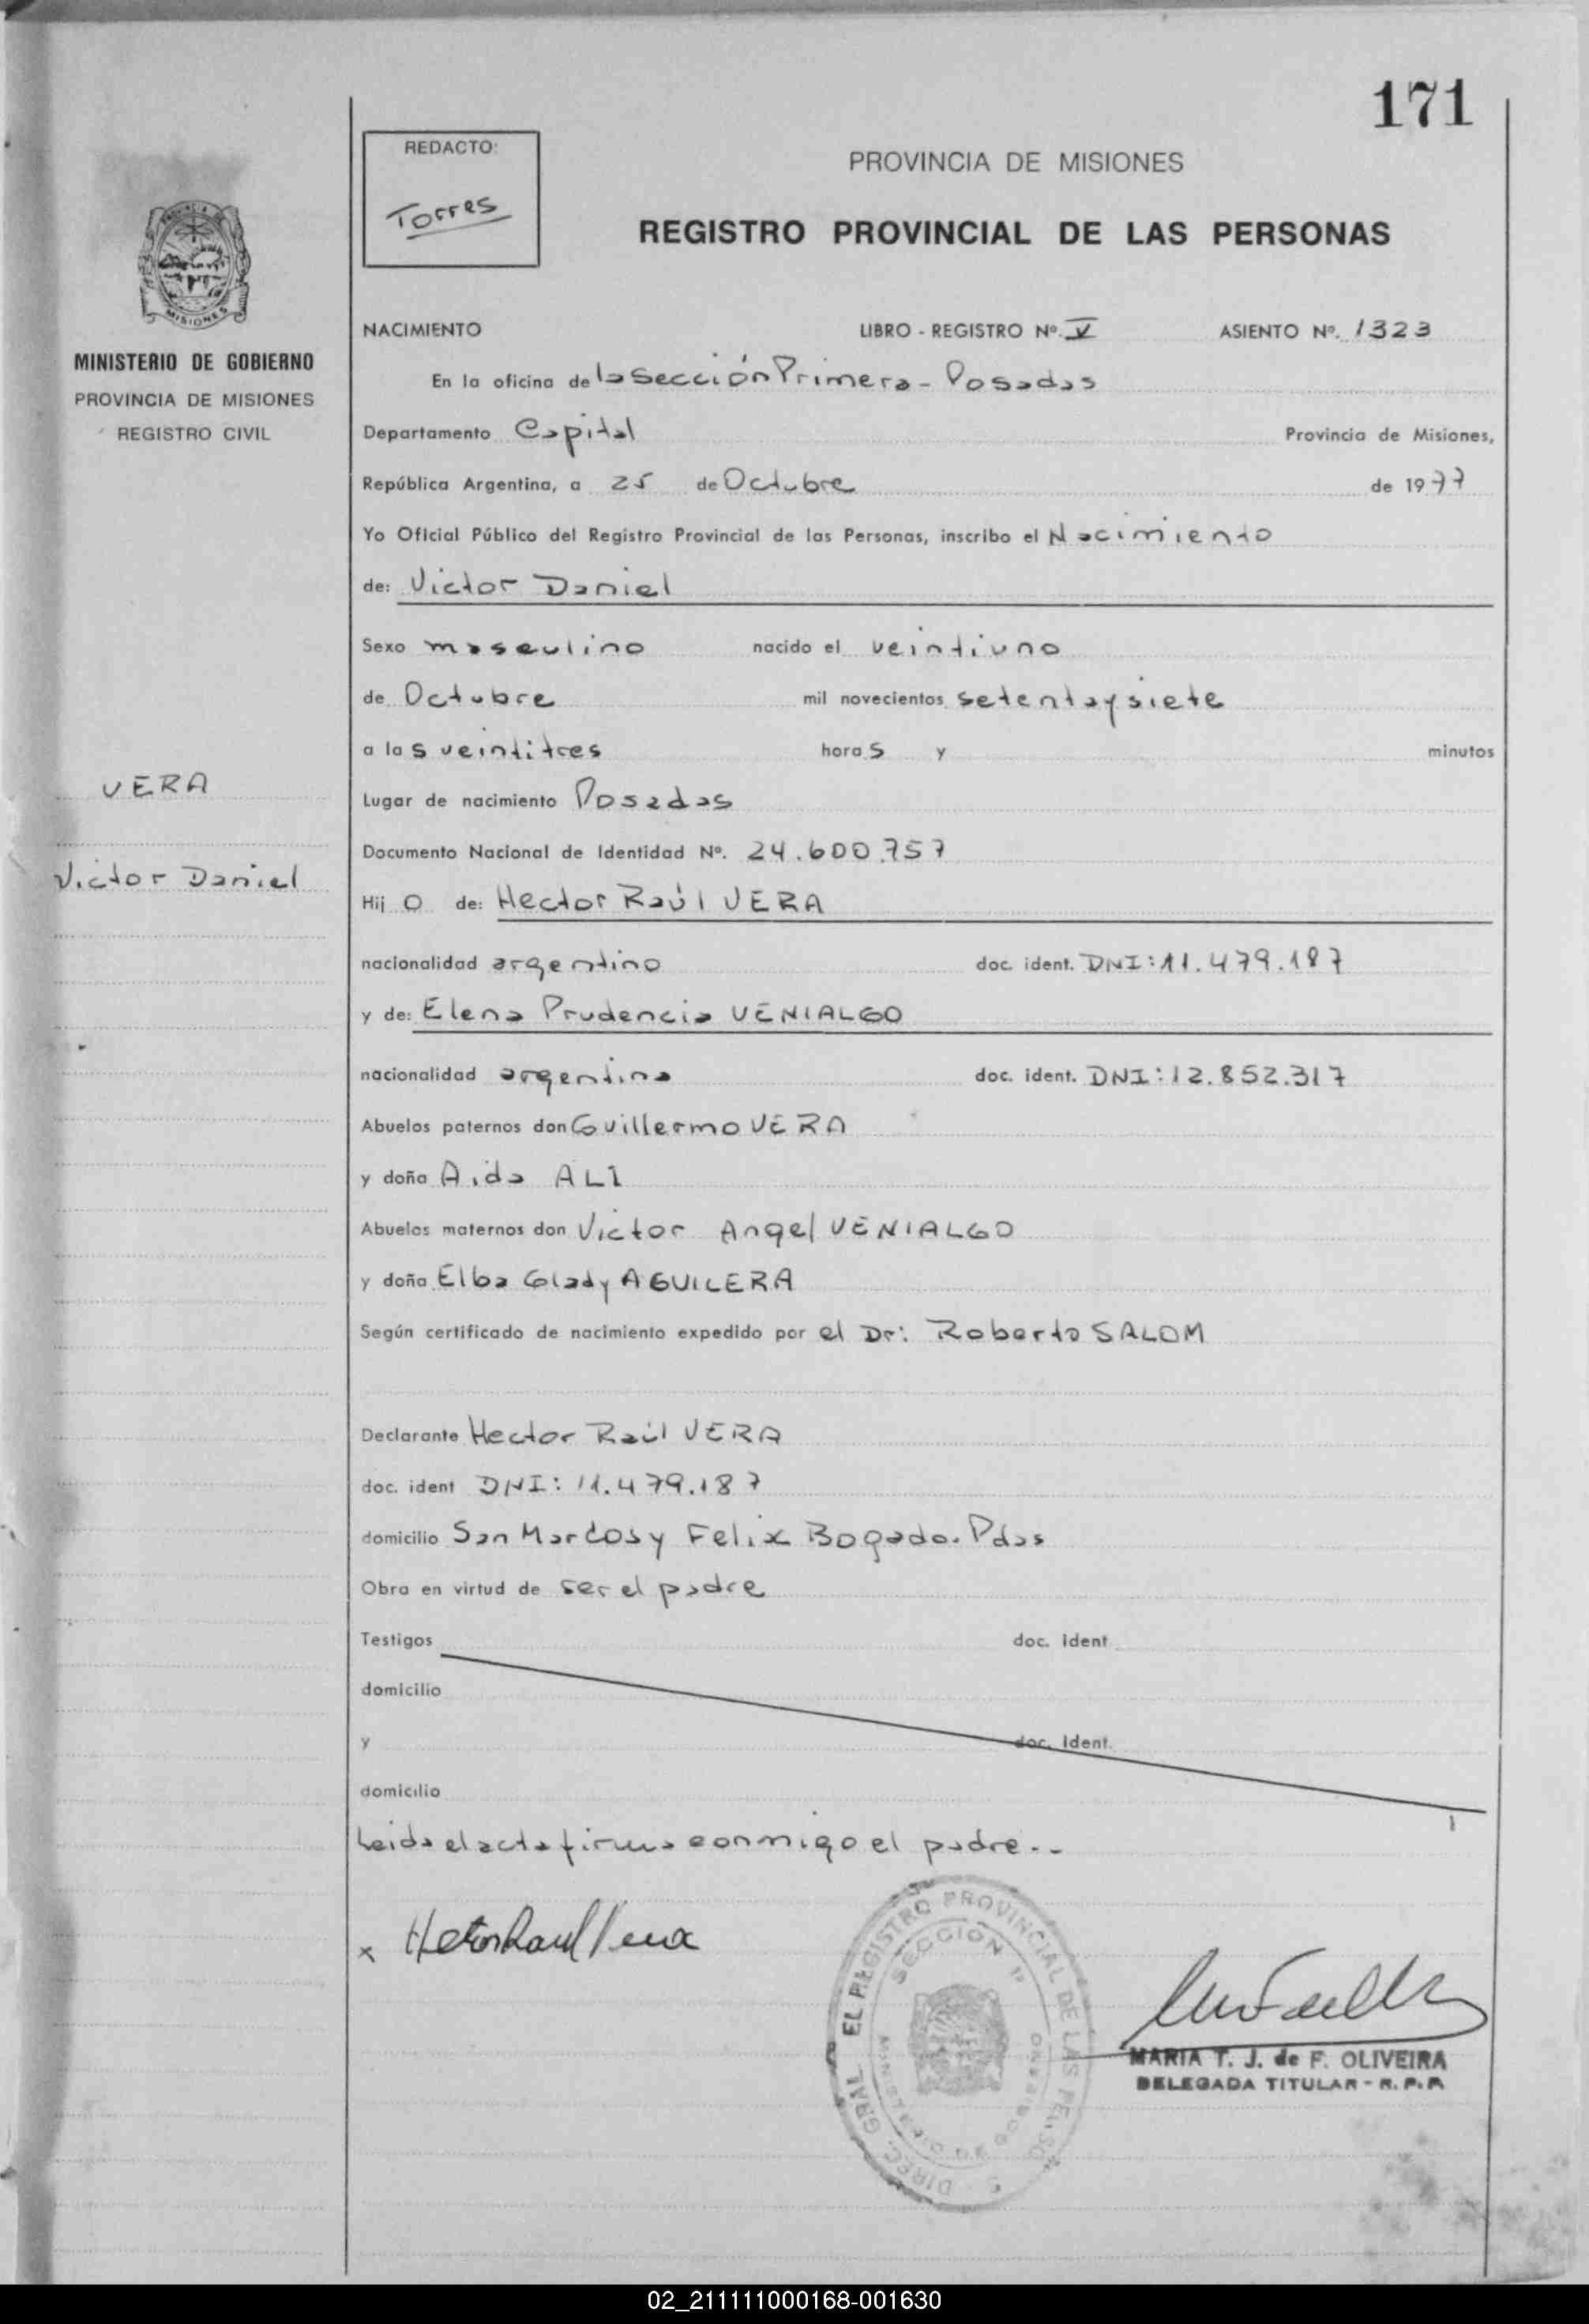 171
REDACTO:
Torres
PROVINCIA DE MISIONES
REGISTRO PROVINCIAL DE LAS PERSONAS
PROVINCIA DE
MISIONES
MINISTERIO DE GOBIERNO
PROVINCIA DE MISIONES
REGISTRO CIVIL
VERA
Victor Daniel
NACIMIENTO LIBRO - REGISTRO Nº. V ASIENTO Nº. 1323
En la oficina de la Sección Primera - Posadas
Departamento Capital Provincia de Misiones,
República Argentina, a 25 de Octubre de 1977
Yo Oficial Público del Registro Provincial de las Personas, inscribo el Nacimiento
de: Victor Daniel
Sexo masculino nacido el veintiuno
de Octubre mil novecientos setenta y siete
a las veintitres horas y minutos
Lugar de nacimiento Posadas
Documento Nacional de Identidad Nº. 24.600.757
Hijo de: Hector Raúl VERA
nacionalidad argentino doc. ident. DNI: 11.479.187
y de: Elena Prudencia VENIALGO
nacionalidad argentina doc. ident. DNI: 12.852.317
Abuelos paternos don Guillermo VERA
y doña Aida ALI
Abuelos maternos don Victor Angel VENIALGO
y doña Elba Glady AGUILERA
Según certificado de nacimiento expedido por el Dr: Roberto SALOM
Declarante Hector Raúl VERA
doc. ident DNI: 11.479.187
domicilio San Marcos y Felix Bogado. Pdas
Obra en virtud de ser el padre
Testigos doc. ident
domicilio
y doc. ident.
domicilio
Leida el acta firma conmigo el padre.--
x Hector Raul Vera
DIREC. GRAL. EL REGISTRO PROVINCIAL DE LAS PERSO S
SECCION 1ª
MARIA T. J. de F. OLIVEIRA
DELEGADA TITULAR - R. P. P.
02_211111000168-001630